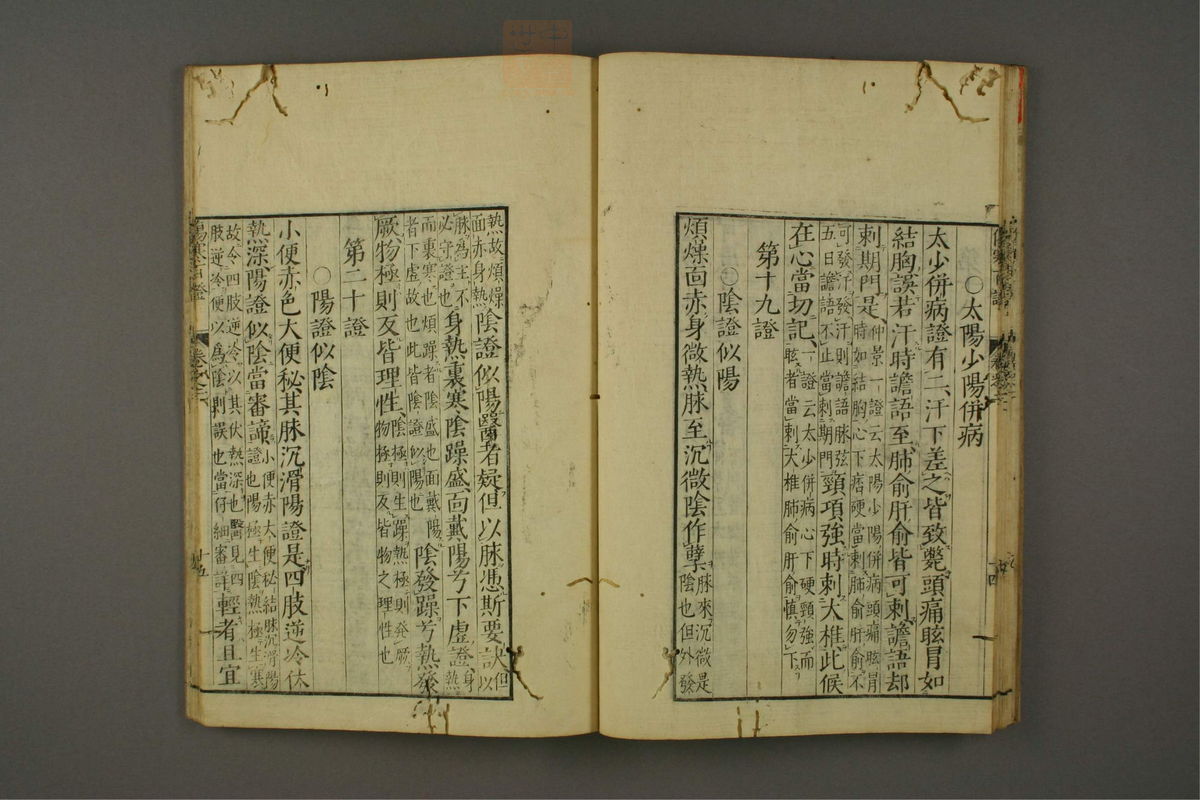 ○太陽少陽併病
太少併病證有二汗下差之皆致斃頭痛眩冒如
結胸誤若汗時譫語至肺俞肝俞皆可刺譫語却
刺期門是仲景一證云太陽少陽併病頭痛眩冒
時如結胸心下痞硬當刺肺俞肝俞不
可發汗發汗則譫語脉弦
五日譫語不止當刺期門頸項強時刺大椎此候
在心當切記一證云太少併病心下硬頸強而
眩者當刺大椎肺俞肝俞慎勿下
第十九證
○陰證似陽
煩燥面赤身微熱脉至沉微陰作孽脉來沉微是
陰也但外發
熱故煩燥
面赤身熱陰證似陽醫者疑但以脉憑斯要訣但以
脉為主不
必守證也身熱裏寒陰躁盛面戴陽兮下虛證身熱
而裏寒也煩躁者陰盛也面戴陽
者下虛故也此皆陰證似陽也陰發躁兮熱發
厥物極則反皆理性陰極則生躁熱極則發厥
物極則反皆物之理性也
第二十證
○陽證似陰
小便赤色大便秘其脉沉滑陽證是四肢逆冷伏
熱深陽證似陰當審諦小便赤大便秘結脉沉滑陽
證也陽極生陰熱極生寒
故令四肢逆冷以其伏熱深也醫見四
肢逆冷便以為陰則誤也當仔細審詳輕者且宜